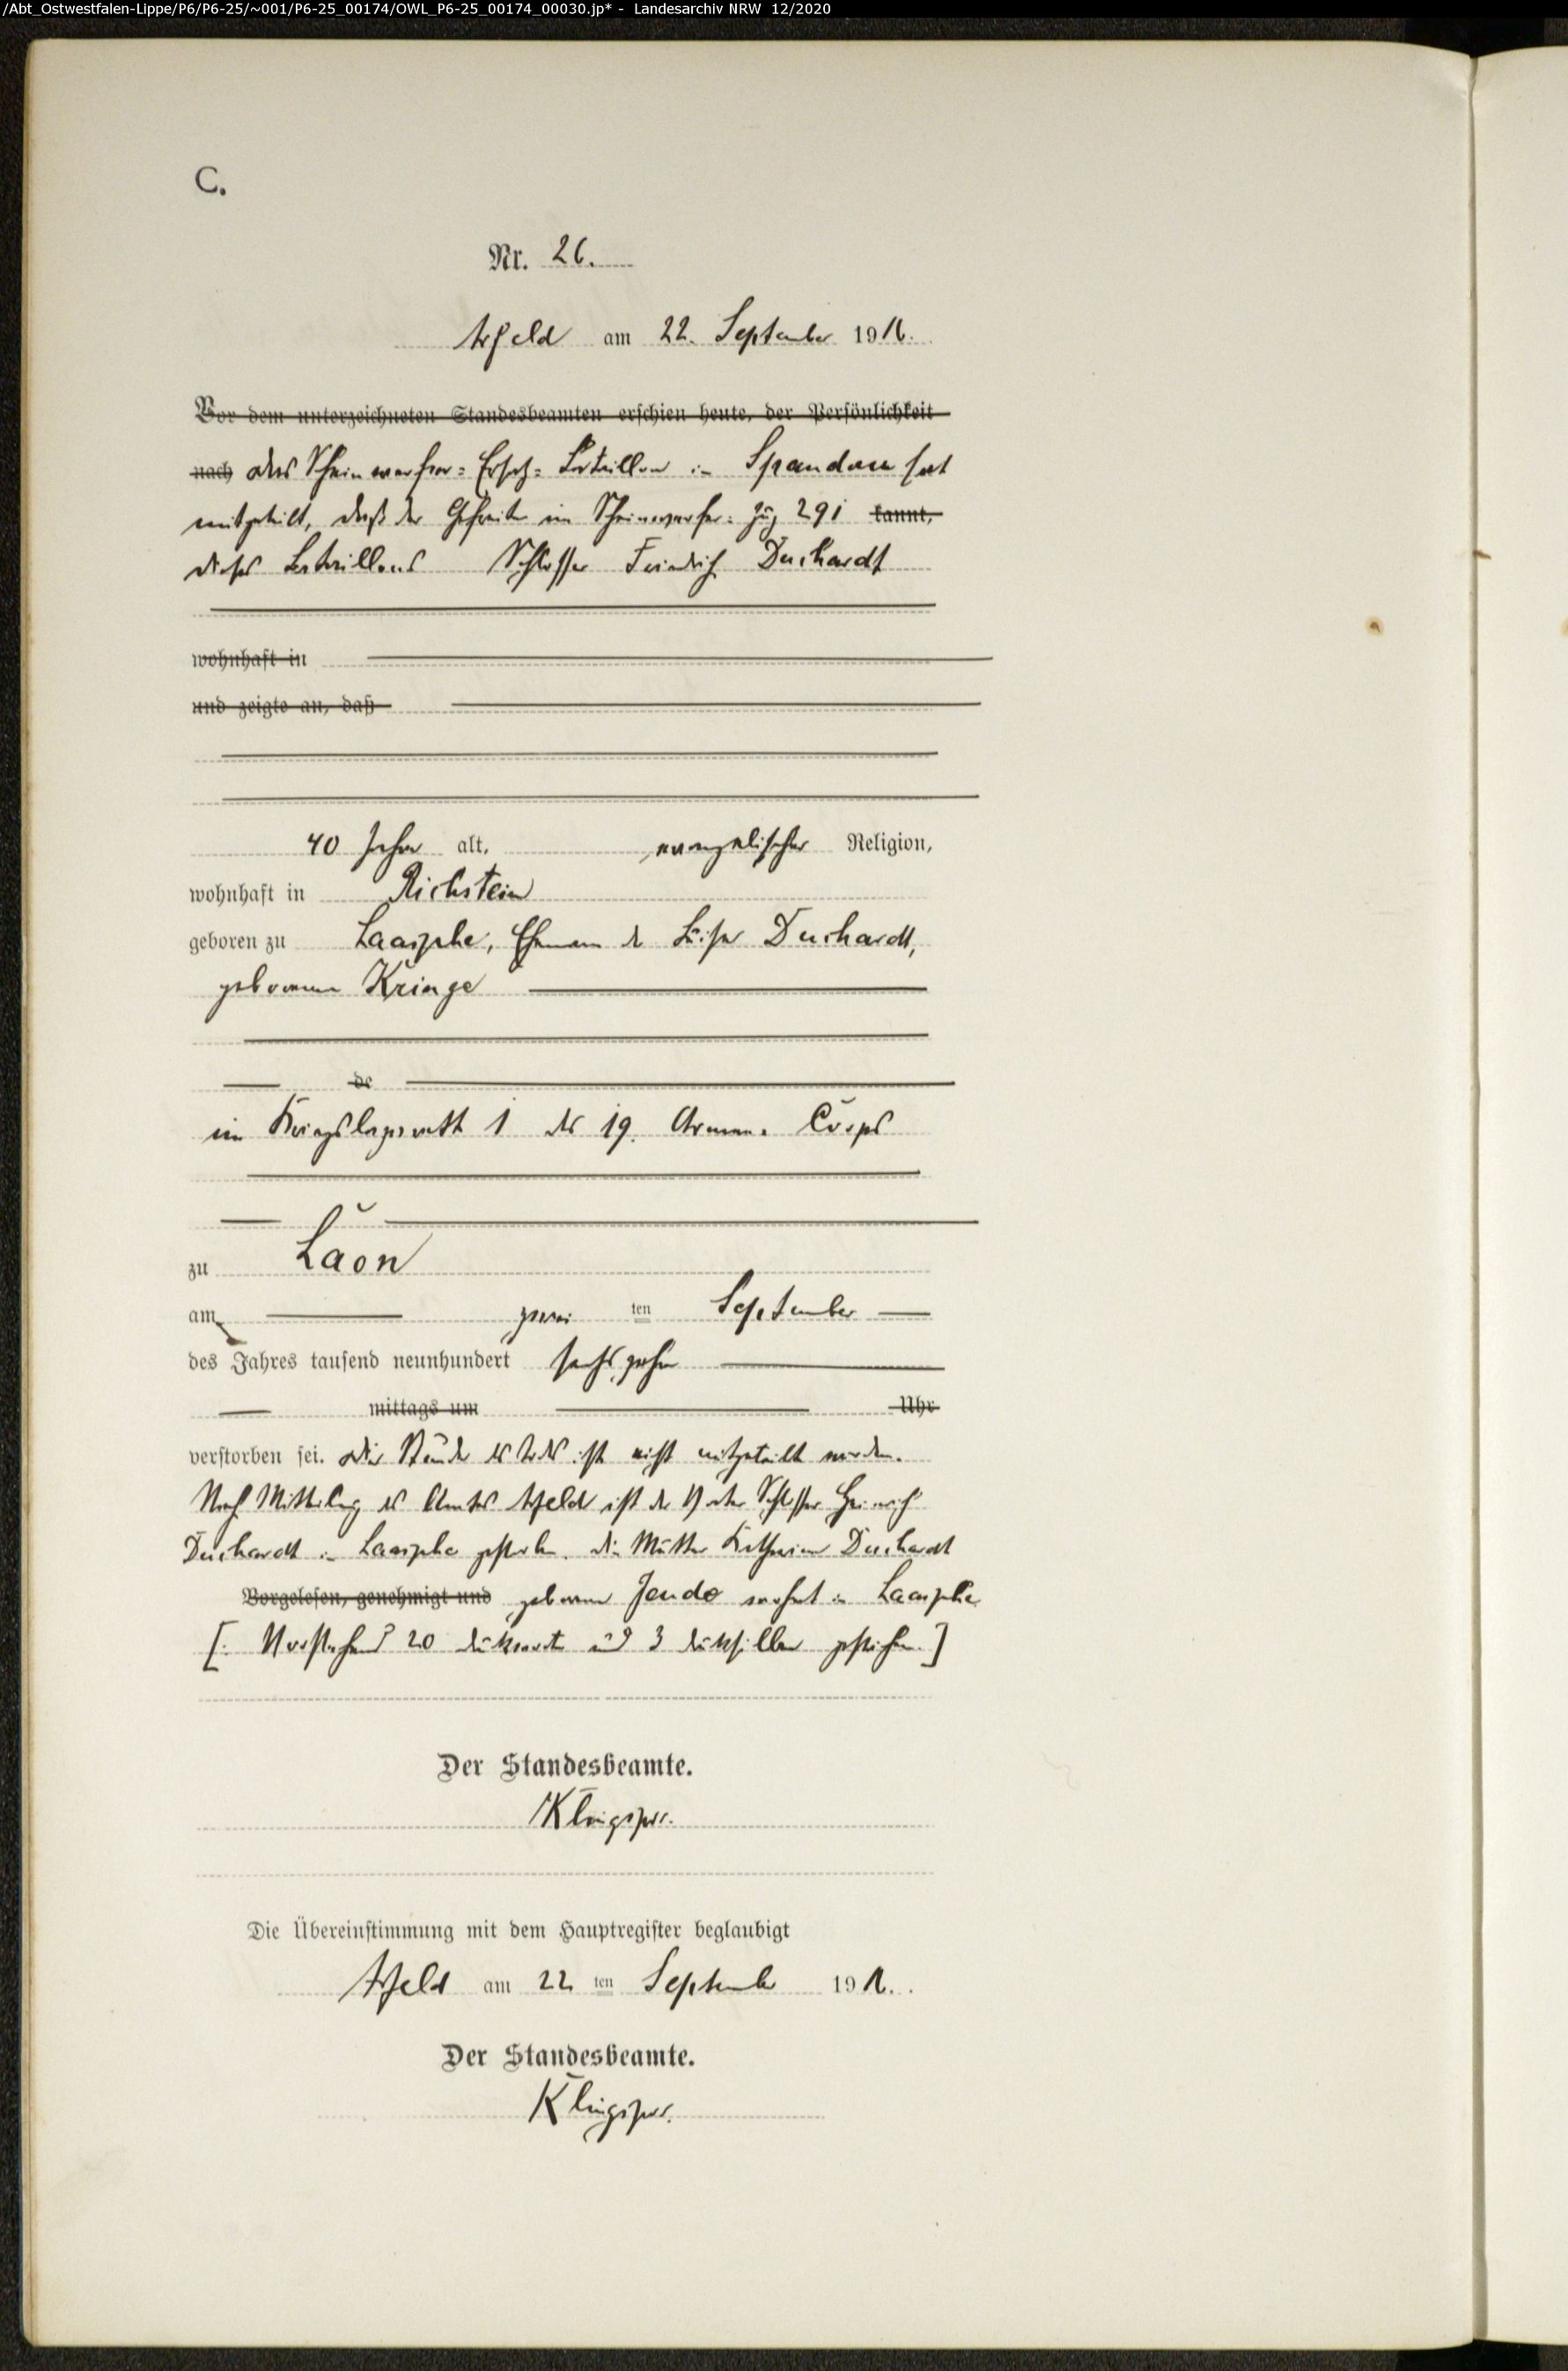 /Abt_Ostwestfalen-Lippe/P6/P6-25/~001/P6-25_00174/OWL_P6-25_00174_00030.jp* - Landesarchiv NRW 12/2020
C.
Nr. 26.
Arfeld am 22. September 1916.
Vor dem unterzeichneten Standesbeamten erschien heute, der Persönlichkeit
nach das Scheinwerfer-Ersatz-Bataillon in Spandau hat
mitgeteilt, daß der Gefreite im Scheinwerfer-Zug 291 kannt,
dieses Bataillons Schlosser Friedrich Duchardt
wohnhaft in
und zeigte an, daß
40 Jahre alt, evangelischer Religion,
wohnhaft in Richstein
geboren zu Laasphe, Ehemann der Luise Duchardt,
geborenen Kringe
de
im Kriegslazarett 1 des 19. Armee-Corps
zu Laon
am zwei ten September
des Jahres tausend neunhundert sechszehn
mittags um Uhr
verstorben sei. Die Stunde des Todes ist nicht mitgeteilt worden.
Nach Mitteilung des Amtes Arfeld ist der Vater Schlosser Heinrich
Duchardt in Laasphe gestorben. die Mutter Katharine Duchardt
Vorgelesen, genehmigt und geborene Jende wohnt in Laasphe
[: Vorstehend 20 Druckworte und 3 Drucksilben gestrichen.]
Der Standesbeamte.
Klingspor.
Die Übereinstimmung mit dem Hauptregister beglaubigt
Arfeld am 22 ten September 1916.
Der Standesbeamte.
Klingspor.